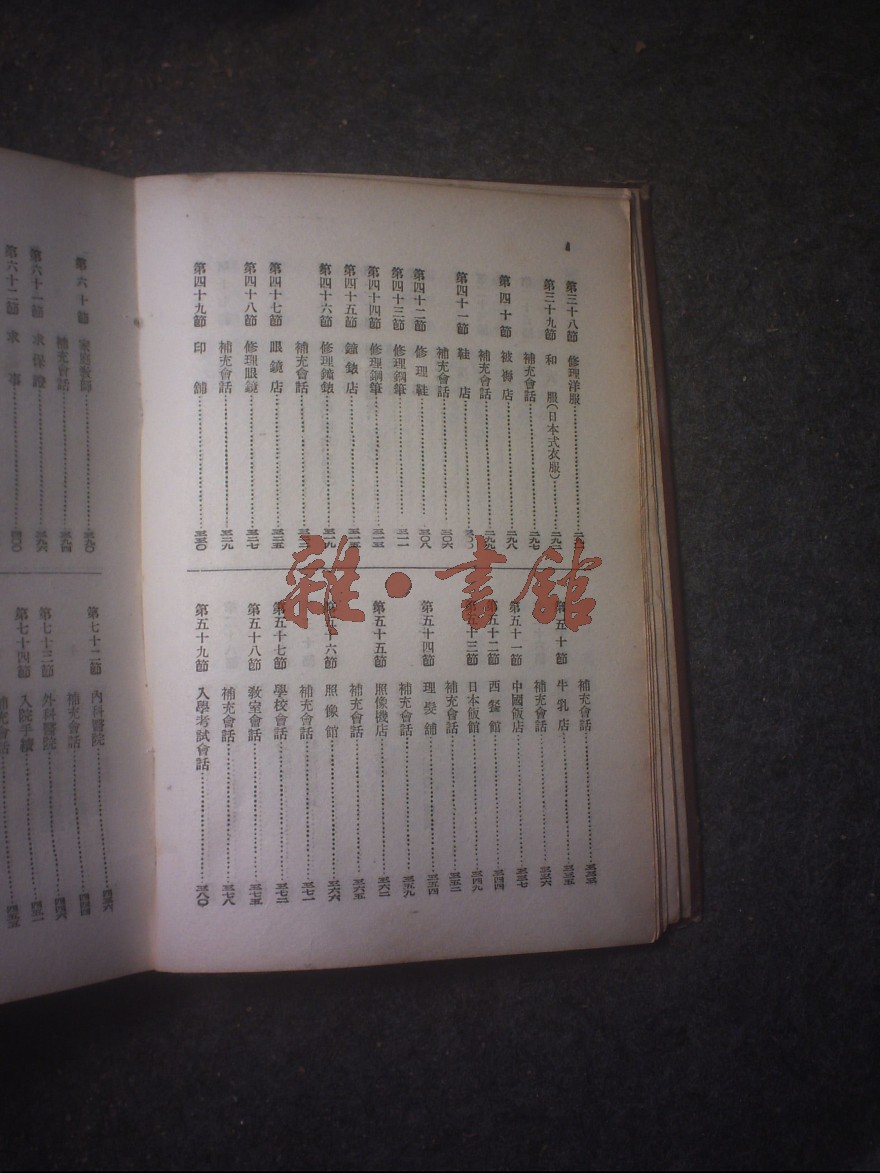 第三十八節 修理洋服
第三十九節 和 服（日本式衣服）
補充會話 二九七
第四十節 被褥店 二九八
補充會話 二九九
第四十一節 鞋店 三〇〇
補充會話 三〇六
第四十二節 修理鞋 三〇八
第四十三節 修理鋼筆 三一一
第四十四節 修理鋼筆 三一五
第四十五節 鐘錶店 三一五
第四十六節 修理鐘錶 三一九
補充會話
第四十七節 眼鏡店 三二五
第四十八節 修理眼鏡 三二七
補充會話 三二九
第四十九節 印舖 三三〇
補充會話 三三三
第五十節 牛乳店 三三五
補充會話 三三六
第五十一節 中國飯店 三三七
第五十二節 西餐館 三四四
第五十三節 日本飯館 三四九
補充會話 三五二
第五十四節 理髮舖 三五四
補充會話 三五九
第五十五節 照像機店 三六二
補充會話 三六五
第五十六節 照像館 三六六
補充會話 三七一
第五十七節 學校會話 三七二
第五十八節 教室會話 三七五
補充會話 三七八
第五十九節 入學考試會話 三八〇
第六十節 家庭教師 三九〇
補充會話 三九四
第六十一節 求保證 三九六
第六十二節 求事 四〇〇
第七十二節 內科醫院 四三六
補充會話 四四四
第七十三節 外科醫院 四四六
第七十四節 入院手續 四五一
補充會話
雜·書館